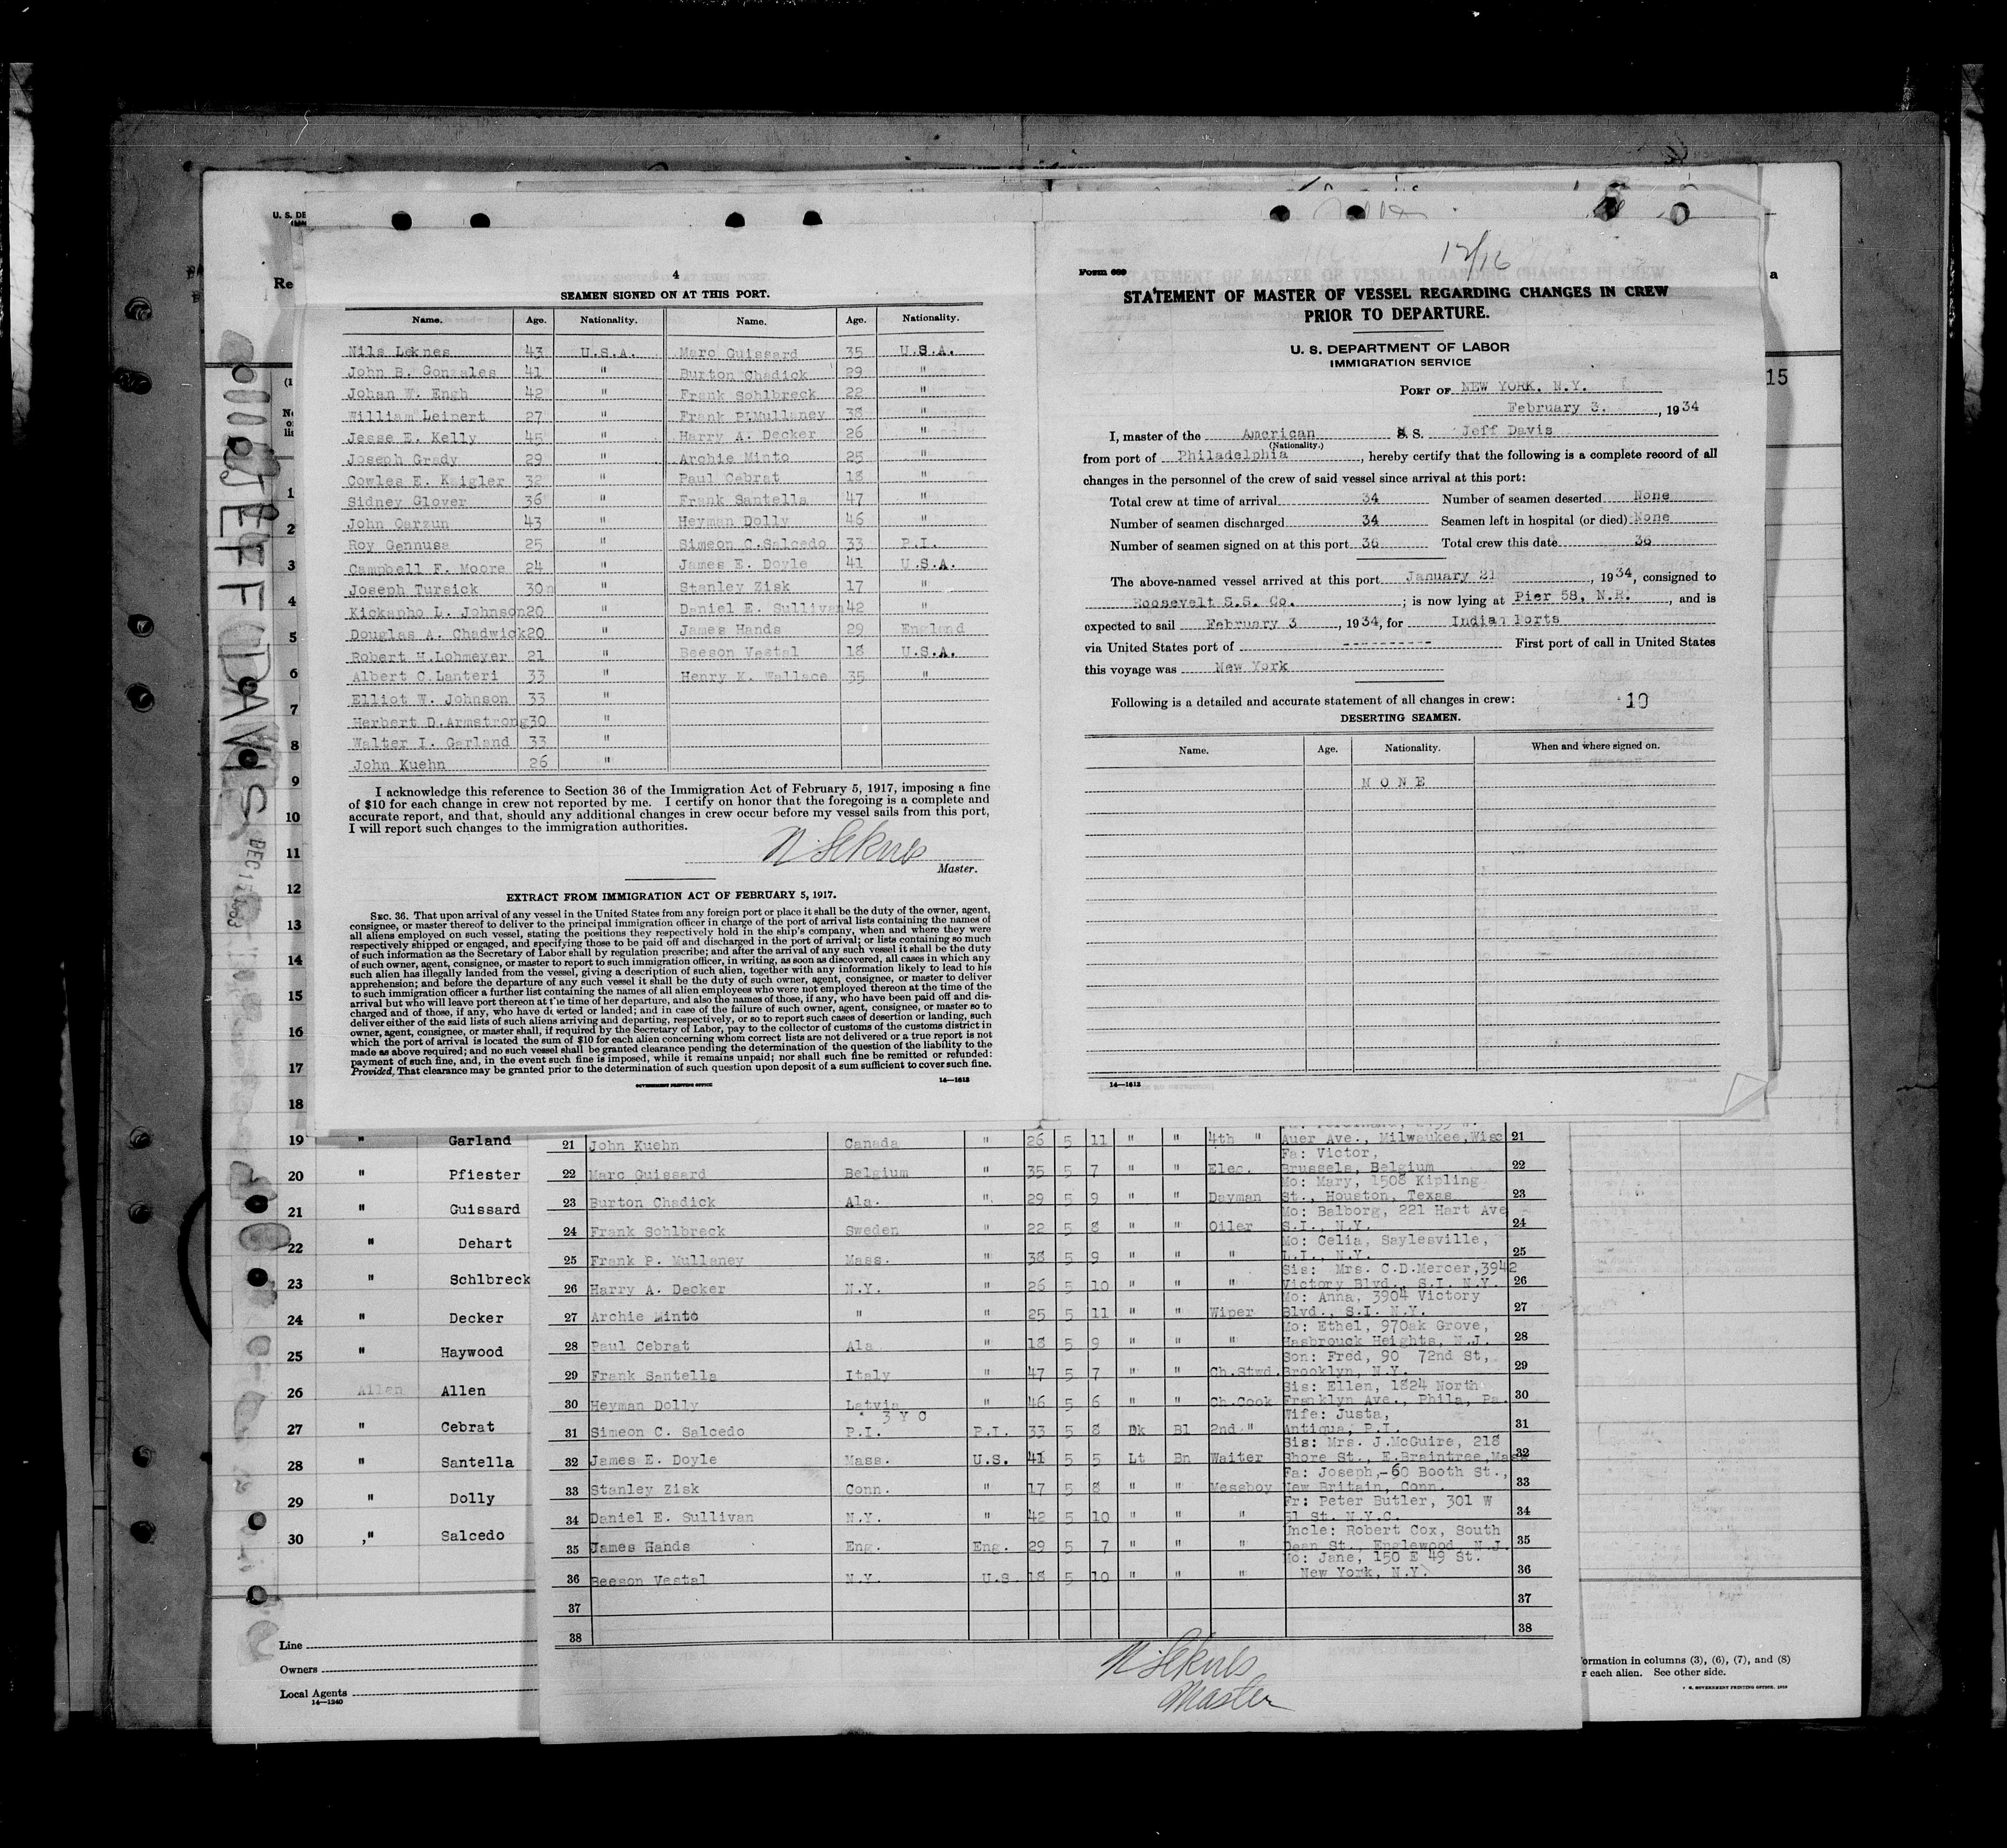 U. S. DE
Re
4
SEAMEN SIGNED ON AT THIS PORT.
Name. Age. Nationality. Name. Age. Nationality.
Nils Leknes 43 U.S.A. Marc Guissard 35 U.S.A.
John B. Gonzales 41 " Burton Chadick 29 "
Johan W. Engh 42 " Frank Sohlbreck 22 "
William Leinert 27 " Frank P.Mullaney 38 "
Jesse E. Kelly 45 " Harry A. Decker 26 "
Joseph Grady 29 " Archie Minto 25 "
Cowles E. Kaigler 32 " Paul Cebrat 18 "
Sidney Glover 36 " Frank Santella 47 "
John Oarzun 43 " Heyman Dolly 46 "
Roy Gennusa 25 " Simeon C.Salcedo 33 P.I.
Campbell F. Moore 24 " James E. Doyle 41 U.S.A.
Joseph Tursick 30 " Stanley Zisk 17 "
Kickapho L. Johnson 20 " Daniel E. Sullivan 42 "
Douglas A. Chadwick 20 " James Hands 29 England
Robert H.Lohmeyer 21 " Beeson Vestal 18 U.S.A.
Albert C.Lanteri 33 " Henry K. Wallace 35 "
Elliot W. Johnson 33 "
Herbert D.Armstrong 30 "
Walter I. Garland 33 "
John Kuehn 26 "
I acknowledge this reference to Section 36 of the Immigration Act of February 5, 1917, imposing a fine
of $10 for each change in crew not reported by me. I certify on honor that the foregoing is a complete and
accurate report, and that, should any additional changes in crew occur before my vessel sails from this port,
I will report such changes to the immigration authorities.
N. Leknes
Master.
EXTRACT FROM IMMIGRATION ACT OF FEBRUARY 5, 1917.
SEC. 36. That upon arrival of any vessel in the United States from any foreign port or place it shall be the duty of the owner, agent,
consignee, or master thereof to deliver to the principal immigration officer in charge of the port of arrival lists containing the names of
all aliens employed on such vessel, stating the positions they respectively hold in the ship's company, when and where they were
respectively shipped or engaged, and specifying those to be paid off and discharged in the port of arrival; or lists containing so much
of such information as the Secretary of Labor shall by regulation prescribe; and after the arrival of any such vessel it shall be the duty
of such owner, agent, consignee, or master to report to such immigration officer, in writing, as soon as discovered, all cases in which any
such alien has illegally landed from the vessel, giving a description of such alien, together with any information likely to lead to his
apprehension; and before the departure of any such vessel it shall be the duty of such owner, agent, consignee, or master to deliver
to such immigration officer a further list containing the names of all alien employees who were not employed thereon at the time of the
arrival but who will leave port thereon at the time of her departure, and also the names of those, if any, who have been paid off and dis-
charged and of those, if any, who have deserted or landed; and in case of the failure of such owner, agent, consignee, or master so to
deliver either of the said lists of such aliens arriving and departing, respectively, or so to report such cases of desertion or landing, such
owner, agent, consignee, or master shall, if required by the Secretary of Labor, pay to the collector of customs of the customs district in
which the port of arrival is located the sum of $10 for each alien concerning whom correct lists are not delivered or a true report is not
made as above required; and no such vessel shall be granted clearance pending the determination of the question of the liability to the
payment of such fine, and, in the event such fine is imposed, while it remains unpaid; nor shall such fine be remitted or refunded:
Provided, That clearance may be granted prior to the determination of such question upon deposit of a sum sufficient to cover such fine.
GOVERNMENT PRINTING OFFICE 14—1612
12/16
Form 689
STATEMENT OF MASTER OF VESSEL REGARDING CHANGES IN CREW
PRIOR TO DEPARTURE.
U. S. DEPARTMENT OF LABOR
IMMIGRATION SERVICE
PORT OF NEW YORK, N.Y.
February 3. , 1934
I, master of the American S. S. Jeff Davis
(Nationality.)
from port of Philadelphia , hereby certify that the following is a complete record of all
changes in the personnel of the crew of said vessel since arrival at this port:
Total crew at time of arrival 34 Number of seamen deserted None
Number of seamen discharged 34 Seamen left in hospital (or died) None
Number of seamen signed on at this port 36 Total crew this date 36
The above-named vessel arrived at this port January 21 , 1934, consigned to
Roosevelt S.S. Co. ; is now lying at Pier 58, N.R. , and is
expected to sail February 3 , 1934, for Indian Ports
via United States port of ---------- First port of call in United States
this voyage was New York
Following is a detailed and accurate statement of all changes in crew: 10
DESERTING SEAMEN.
Name. Age. Nationality. When and where signed on.
M O N E
14—1612
a
15
JEFF DAVIS
DEC 1
1
2
3
4
5
6
7
8
9
10
11
12
13
14
15
16
17
18
19 " Garland
20 " Pfiester
21 " Guissard
22 " Dehart
23 " Schlbreck
24 " Decker
25 " Haywood
26 Allen Allen
27 " Cebrat
28 " Santella
29 " Dolly
30 " Salcedo
Line
Owners
Local Agents
14—1240
21 John Kuehn Canada " 26 5 11 " " 4th " Auer Ave., Milwaukee,Wisc 21
22 Marc Guissard Belgium " 35 5 7 " " Elec. Fa: Victor, Brussels, Belgium 22
23 Burton Chadick Ala. " 29 5 9 " " Dayman Mo: Mary, 1508 Kipling St., Houston, Texas 23
24 Frank Sohlbreck Sweden " 22 5 8 " " Oiler Mo: Balborg, 221 Hart Ave S.I., N.Y. 24
25 Frank P. Mullaney Mass. " 38 5 9 " " " Mo: Celia, Saylesville, L.I., N.Y. 25
26 Harry A. Decker N.Y. " 26 5 10 " " " Sis: Mrs. C.D.Mercer,3942 Victory Blvd., S.I. N.Y. 26
27 Archie Minto " " 25 5 11 " " Wiper Mo: Anna, 3904 Victory Blvd., S.I. N.Y. 27
28 Paul Cebrat Ala " 18 5 9 " " " Mo: Ethel, 97Oak Grove, Hasbrouck Heights, N.J. 28
29 Frank Santella Italy " 47 5 7 " " Ch.Stwd. Son: Fred, 90 72nd St, Brooklyn, N.Y. 29
30 Heyman Dolly Latvia " 46 5 6 " " Ch.Cook Sis: Ellen, 1824 North Franklyn Ave., Phila, Pa. 30
3 Y O
31 Simeon C. Salcedo P.I. P.I. 33 5 8 Dk Bl 2nd " Wife: Justa, Antiqua, P.I. 31
32 James E. Doyle Mass. U.S. 41 5 5 Lt Bn Waiter Sis: Mrs. J.McGuire, 218 Shore St., E.Braintree,Mass 32
33 Stanley Zisk Conn. " 17 5 8 " " Messboy Fa: Joseph,-60 Booth St., New Britain, Conn. 33
34 Daniel E. Sullivan N.Y. " 42 5 10 " " " Fr: Peter Butler, 301 W 51 St. N.Y.C. 34
35 James Hands Eng. Eng. 29 5 7 " " " Uncle: Robert Cox, South Dean St., Englewood, N.J. 35
36 Beeson Vestal N.Y. U.S. 18 5 10 " " " Mo: Jane, 150 E 49 St. New York, N.Y. 36
37 37
38 38
N. Leknes
Master
ormation in columns (3), (6), (7), and (8)
r each alien. See other side.
GOVERNMENT PRINTING OFFICE